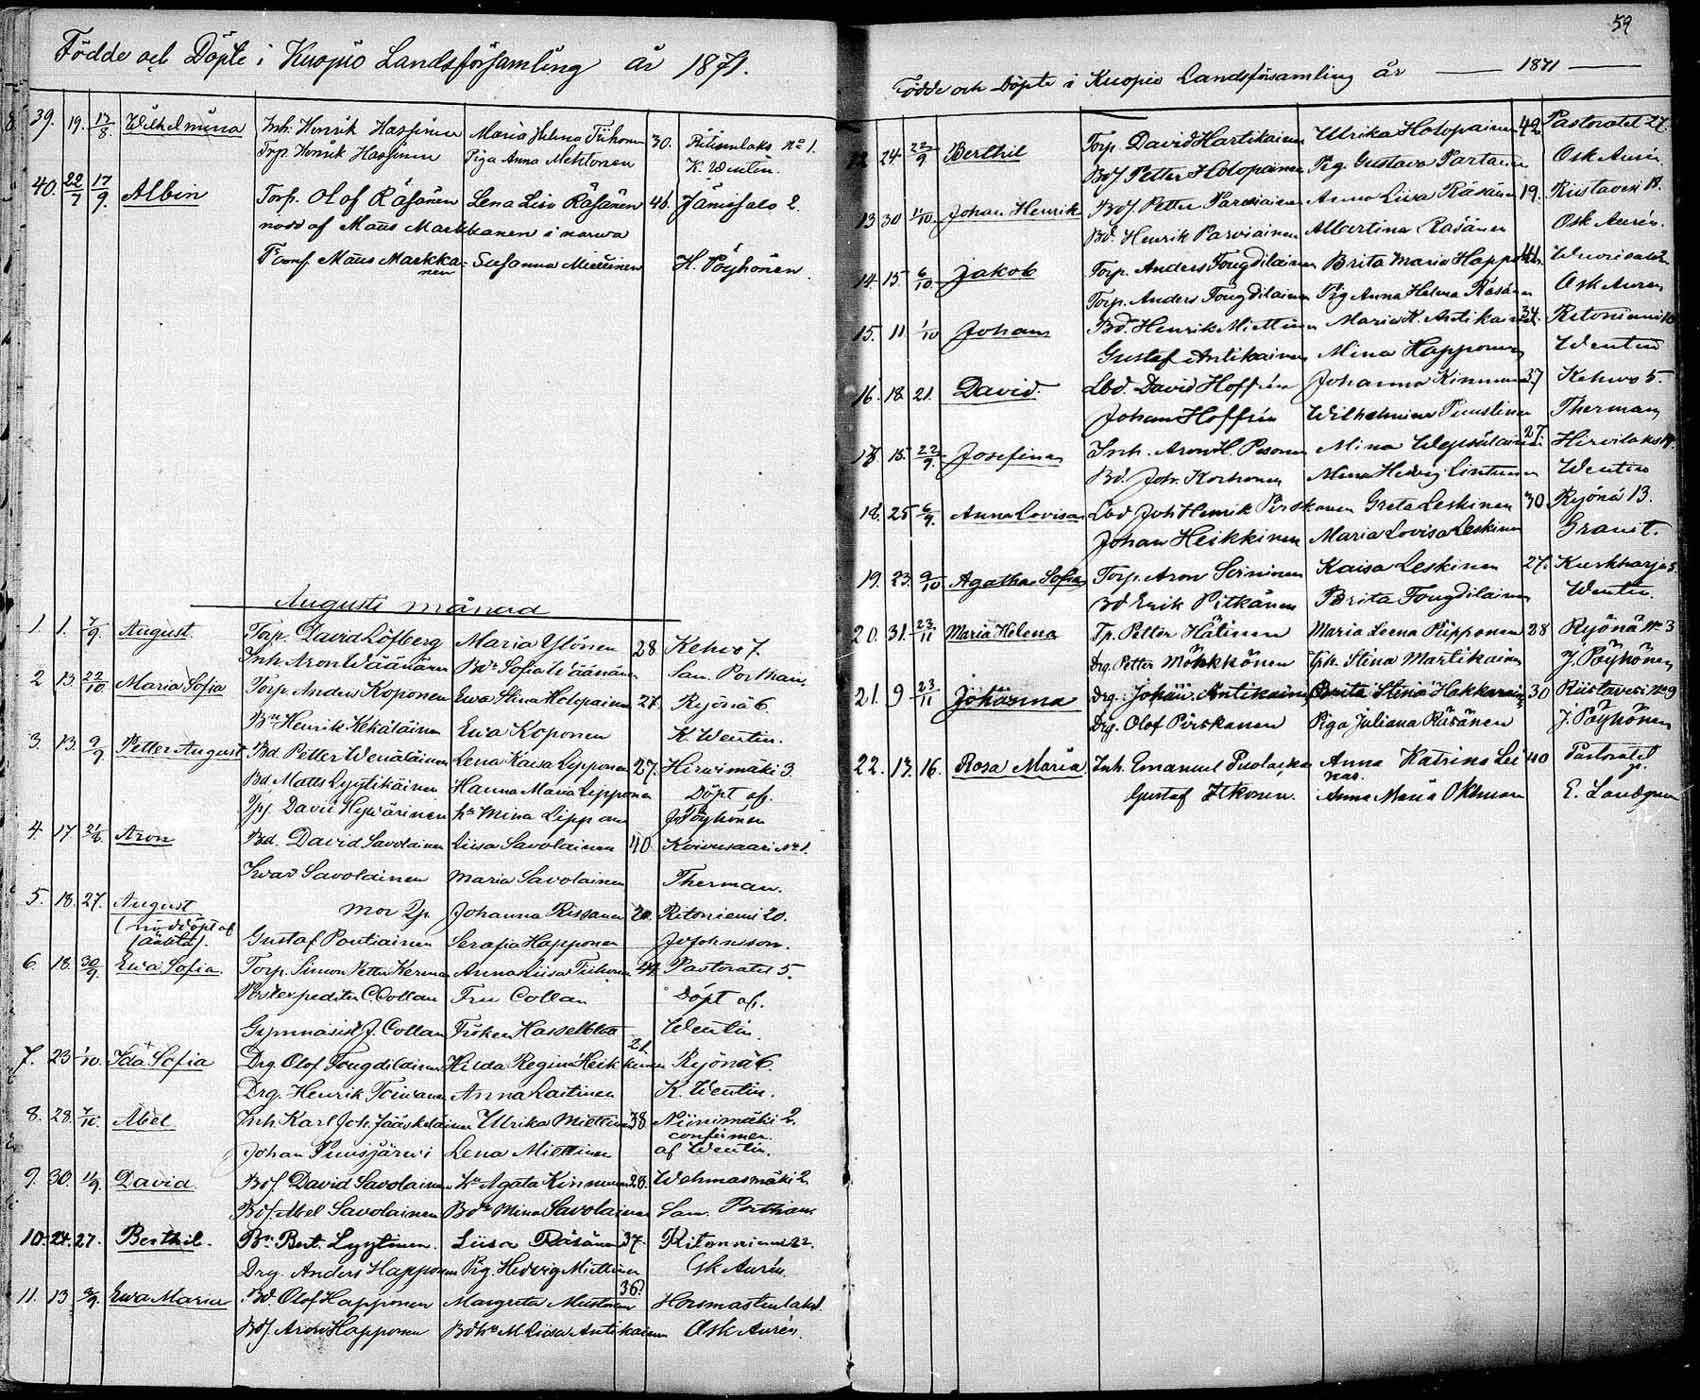 Födde och Döpte i Kuopio Landsförsamling år 1871.
39. 19. 17/8 Wilhelmina Inh. Henrik Hassinen Maria Helena Tiihonen 30. Ritisenlaks No 1.
Torp. Henrik Hassinen Piga Anna Mehtonen K. Wentin.
40. 22/7 17/9 Albin Torp. Olof Räsänen Lena Lisa Räsänen 46. Jämisalo 2.
nöd af Måns Markkanen i
Måns Markkanen Susanna Miettinen H. Pöyhönen.
Augusti månad
1. 1. 7/9 August. Torp. David Löfberg Maria Ylönen 28 Kehvo 7.
Inh. Aron Wäänänen Sofia Wäänänen Sam. Porthan.
2 13 22/10 Maria Sofia Torp. Anders Koponen Ewa Stina Holopainen 27. Ryönä 6.
Henrik Kekäläinen Ewa Koponen K. Wentin.
3. 13. 9/9 Petter August Bd. Petter Wenäläinen Lena Kaisa Lipponen 27. Hirvimäki 3.
Bd. Matts Lyytikäinen Hanna Maria Lipponen Döpt af.
David Hyvärinen Mina Lipponen J. Pöyhönen
4. 17 Aron Bd. David Savolainen Liisa Savolainen 40 Koivusaari No 1.
Iwar Savolainen Maria Savolainen Therman.
5. 18. 27. August mor Johanna Rissanen 20. Ritoniemi 20.
(nöddöpt af
Gustaf Pontiainen Serafia Happonen Johnsson.
6. 18. 30/9 Ewa Sofia. Torp. Simon Petter Anna Liisa Tiihonen 44. Pastoratet 5.
Postexpeditor C. Collan Fru Collan Döpt af.
Gymnasist J. Collan Fröken Hasselblatt Wentin.
7. 23 1/10. Ida Sofia Drg. Olof Fougdilainen Hilda Regina Heikkinen 21 Ryönä 6.
Drg. Henrik Toivanen Anna Laitinen K. Wentin.
8. 28. Abel Inh. Karl Joh. Jääskeläinen Ulrika Miettinen 38. Niinimäki 2.
confirmer.
Johan Puusjärvi Lena Miettinen af Wentin.
9. 30. David Bdf. David Savolainen Agata Kinnunen 28. Wehmasmäki 2
Bdf. Abel Savolainen Mina Savolainen Sam. Porthan
10. 24. 27. Berthil. Bert. Lyytinen. Liisa Räsänen 37. Ritoniemi 22.
Drg. Anders Happonen Pig. Hedvig Miettinen Osk Aurén.
11. 13 Ewa Maria Bd. Olof Happonen Margreta Mustonen 36. Horsmastenlaks 1.
Bdf. Aron Happonen M. Liisa Antikainen Osk Aurén.
59
Födde och Döpte i Kuopio Landsförsamling år — 1871 —
12 24 22/9 Berthil Torp. David Hartikainen Ulrika Holopainen 42 Pastoratet 27.
Bdf. Petter Holopainen Pig. Gustava Partanen Osk Aurén.
13 30 1/10. Johan Henrik Bdf. Petter Parviainen Anna Liisa Räsänen 19. Riistavesi 18.
Bd. Henrik Parviainen Albertina Räsänen Osk Aurén.
14. 15. 6/10. Jakob Torp. Anders Fougdilainen Brita Maria Happonen 44. Wuorisalo
Torp. Anders Fougdilainen Pig Anna Helena Räsänen Osk Auren
15. 11. 1/10 Johan Bd. Henrik Miettinen Maria K. Antikainen 34. Ritoniemi
Gustaf Antikainen Mina Happonen Wentin
16. 18. 21. David. Lbd. David Hoffrén Johanna Kinnunen 37 Kehvo 5.
Johan Hoffrén Wilhelmina Puustinen Therman
17. 15. 22/9. Josefina Inh. Aron H. Pesonen Mina Wepsäläinen 27. Hirvilaks
Bd. Joh. Korhonen Maria Hedvig Lintunen Wentin
18. 25 6/9. Anna Lovisa Lbd. Joh. Henrik Pirskanen Greta Leskinen 30 Ryönä 13.
Johan Heikkinen Maria Lovisa Leskinen Granit.
19. 23. 9/10 Agatha Sofia Torp. Aron Soininen Kaisa Leskinen 27. Kurkharju 5.
Bd Erik Pitkänen Brita Fougdilainen Wentin.
20. 31. 23/11 Maria Helena Tp. Petter Hälinen Maria Leena Piipponen 28 Ryönä No 3
Drg. Petter Mönkkönen Inh. Stina Martikainen J. Pöyhönen
21. 9 23/11 Johanna Drg. Johan Antikainen Brita Stina Hakkarainen 30 Riistavesi No 9
Drg. Olof Pirskanen Piga Juliana Räsänen J. Pöyhönen
22. 13. 16. Rosa Maria Inh. Emanuel Puolacka Anna Katrina Lei 40 Pastoratet
nas.
Gustaf Itkonen. Anna Maria Oksman E. Landgren